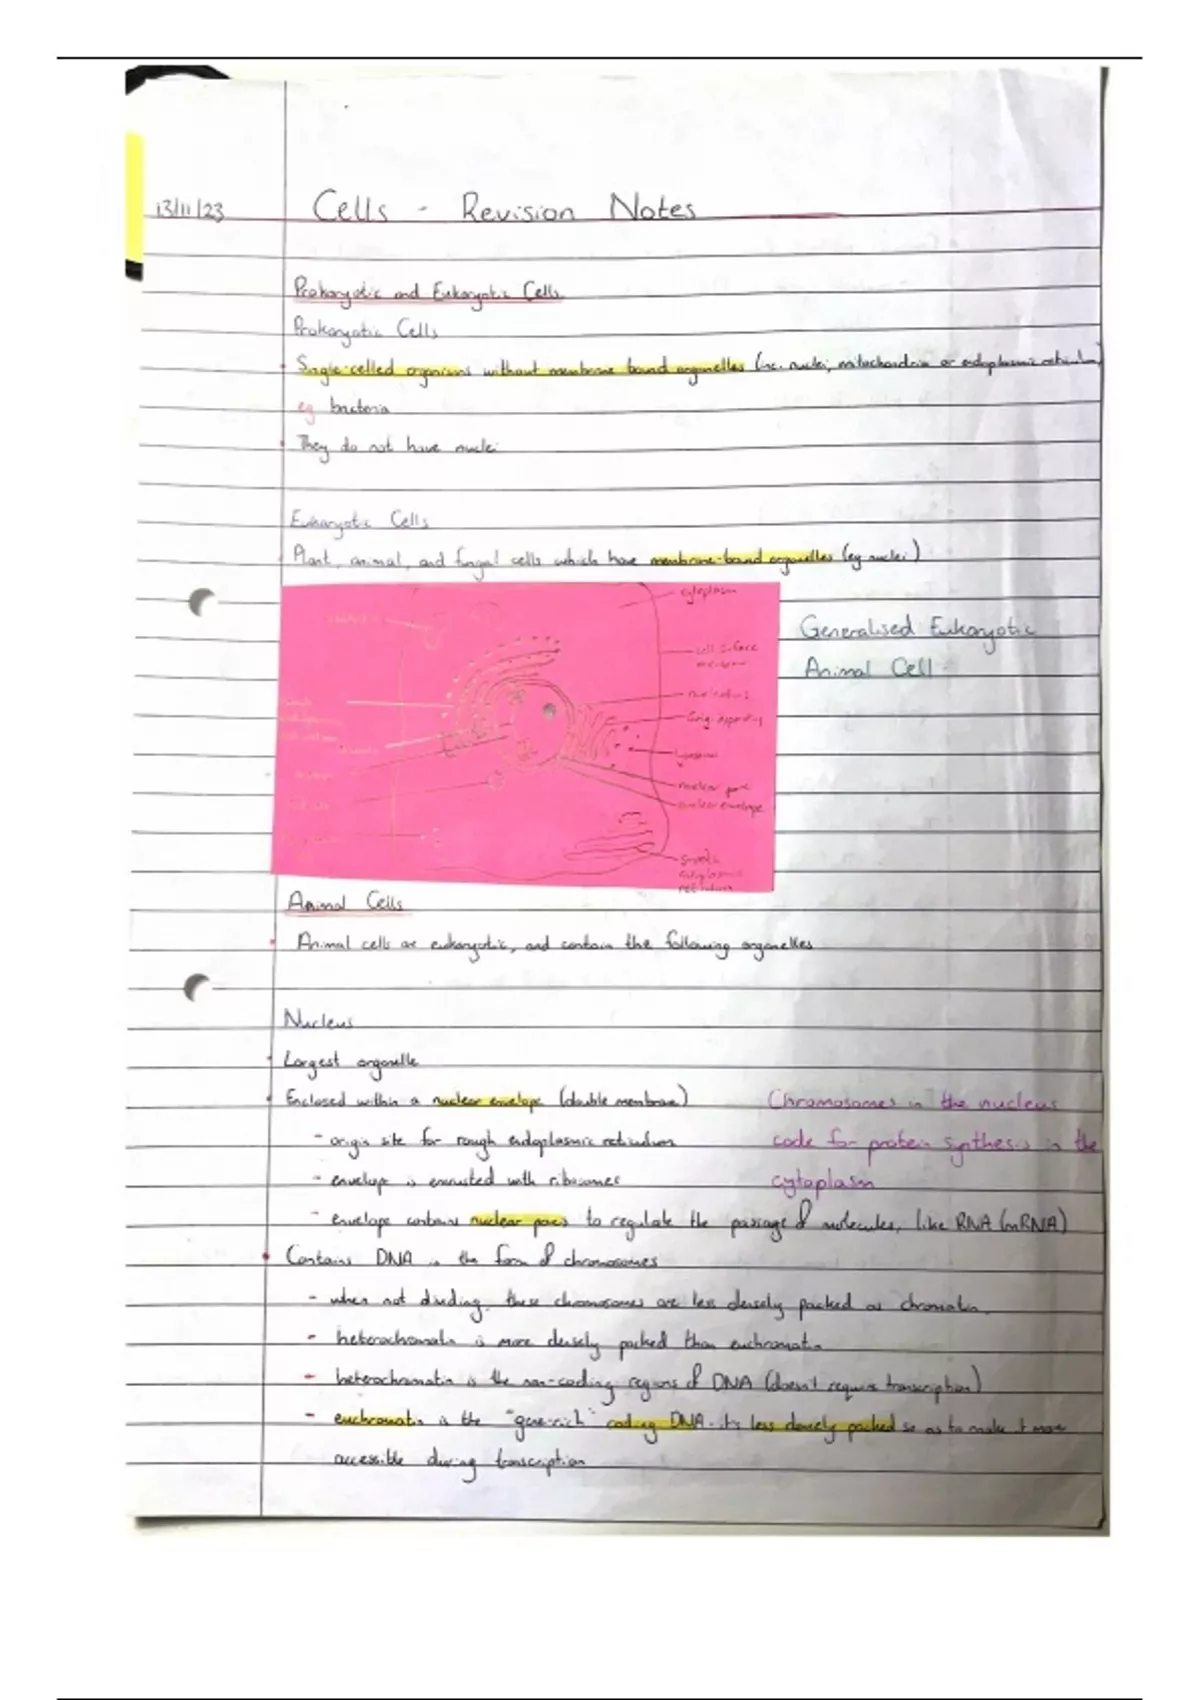 13/11/23
Cells - Revision Notes
Prokaryotic and Eukaryotic Cells
Prokaryotic Cells
Single-celled organisms without membrane bound organelles (inc. nuclei, mitochondria or endoplasmic reticulum)
eg bacteria
They do not have nuclei
Eukaryotic Cells
Plant, animal, and fungal cells which have membrane-bound organelles (eg nuclei)
cytoplasm
cell surface
membrane
nucleolus
Golgi apparatus
lysosome
nuclear pore
nuclear envelope
smooth
endoplasmic
reticulum
Generalised Eukaryotic
Animal Cell
Animal Cells
Animal cells are eukaryotic, and contain the following organelles
Nucleus
Largest organelle
Enclosed within a nuclear envelope (double membrane)
- origin site for rough endoplasmic reticulum
- envelope is encrusted with ribosomes
- envelope contains nuclear pores to regulate the passage of molecules, like RNA (mRNA)
Chromosomes in the nucleus
code for protein synthesis in the
cytoplasm
Contains DNA in the form of chromosomes
- when not dividing, these chromosomes are less densely packed as chromatin.
- heterochromatin is more densely packed than euchromatin
- heterochromatin is the non-coding regions of DNA (doesn't require transcription)
- euchromatin is the "gene-rich" coding DNA - it's less densely packed so as to make it more
accessible during transcription